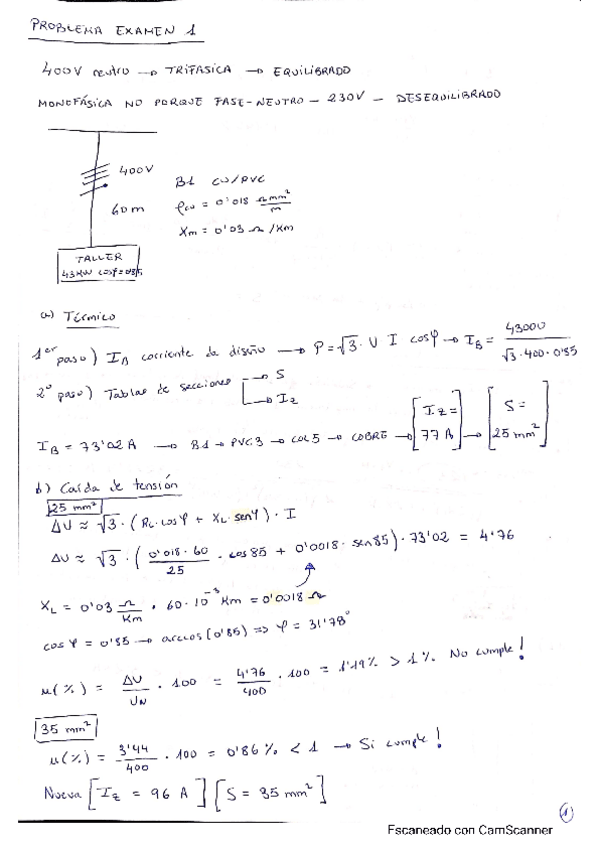 PROBLEMA EXAMEN 1
400V neutro → TRIFASICA → EQUILIBRADO
MONOFÁSICA NO PORQUE FASE-NEUTRO - 230V - DESEQUILIBRADO
400V
60m
B1 CU/PVC
ρcu = 0'018 Ω mm²/m
Xm = 0'03 Ω/Km
TALLER
43KW cosφ=0'85
a) Térmico
1er paso) IB corriente de diseño → P = √3 · U I cosφ → IB = 43000/(√3·400·0'85)
2º paso) Tablas de secciones → S
→ Iz
IB = 73'02 A → B1 → PVC3 → COL5 → COBRE → [Iz = 77 A] → [S = 25 mm²]
b) Caída de tensión
25 mm²
ΔU ≈ √3 · (RL·cosφ + XL·senφ) · I
ΔU ≈ √3 · (0'018·60/25 · cos85 + 0'0018 · sen85) · 73'02 = 4'76
XL = 0'03 Ω/Km · 60·10⁻³ Km = 0'0018 Ω
cosφ = 0'85 → arccos(0'85) ⇒ φ = 31'78°
u(%) = ΔU/UN · 100 = 4'76/400 · 100 = 1'19% > 1%. No cumple!
35 mm²
u(%) = 3'44/400 · 100 = 0'86% < 1 → Si cumple!
Nueva [Iz = 96 A] [S = 35 mm²]
1
Escaneado con CamScanner